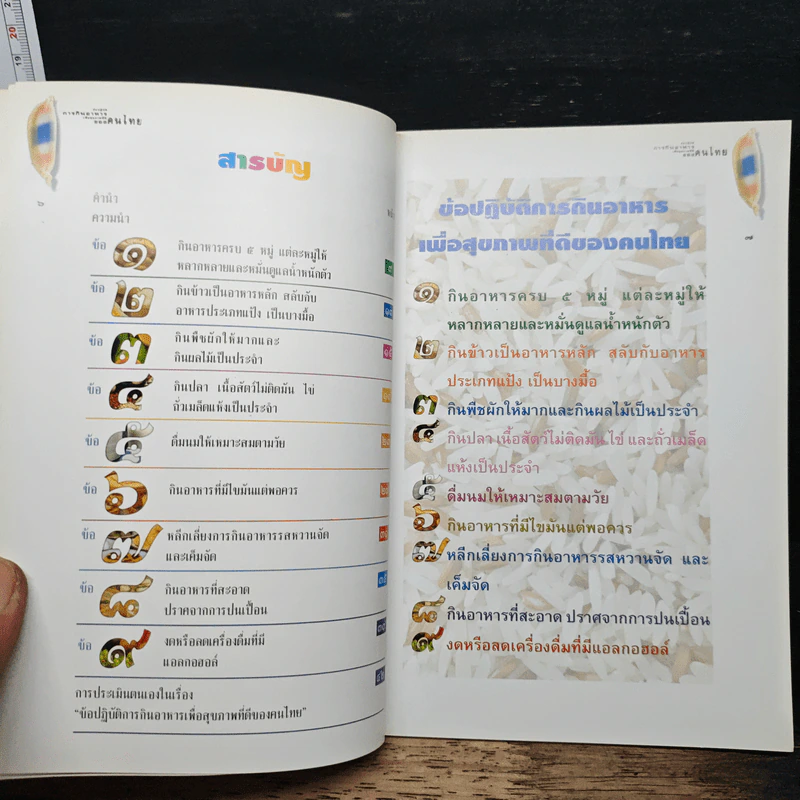 คนไทย
สารบัญ
คำนำ
ความนำ
ข้อ ๑ กินอาหารครบ ๕ หมู่ แต่ละหมู่ให้
หลากหลายและหมั่นดูแลน้ำหนักตัว
ข้อ ๒ กินข้าวเป็นอาหารหลัก สลับกับ
อาหารประเภทแป้ง เป็นบางมื้อ
ข้อ ๓ กินพืชผักให้มากและ
กินผลไม้เป็นประจำ
ข้อ ๔ กินปลา เนื้อสัตว์ไม่ติดมัน ไข่
ถั่วเมล็ดแห้งเป็นประจำ
ข้อ ๕ ดื่มนมให้เหมาะสมตามวัย
ข้อ ๖ กินอาหารที่มีไขมันแต่พอควร
ข้อ ๗ หลีกเลี่ยงการกินอาหารรสหวานจัด
และเค็มจัด
ข้อ ๘ กินอาหารที่สะอาด
ปราศจากการปนเปื้อน
ข้อ ๙ งดหรือลดเครื่องดื่มที่มี
แอลกอฮอล์
การประเมินตนเองในเรื่อง
“ข้อปฏิบัติการกินอาหารเพื่อสุขภาพที่ดีของคนไทย”
คนไทย
๗
ข้อปฏิบัติการกินอาหาร
เพื่อสุขภาพที่ดีของคนไทย
๑ กินอาหารครบ ๕ หมู่ แต่ละหมู่ให้
หลากหลายและหมั่นดูแลน้ำหนักตัว
๒ กินข้าวเป็นอาหารหลัก สลับกับอาหาร
ประเภทแป้ง เป็นบางมื้อ
๓ กินพืชผักให้มากและกินผลไม้เป็นประจำ
๔ กินปลา เนื้อสัตว์ไม่ติดมัน ไข่ และถั่วเมล็ด
แห้งเป็นประจำ
๕ ดื่มนมให้เหมาะสมตามวัย
๖ กินอาหารที่มีไขมันแต่พอควร
๗ หลีกเลี่ยงการกินอาหารรสหวานจัด และ
เค็มจัด
๘ กินอาหารที่สะอาด ปราศจากการปนเปื้อน
๙ งดหรือลดเครื่องดื่มที่มีแอลกอฮอล์